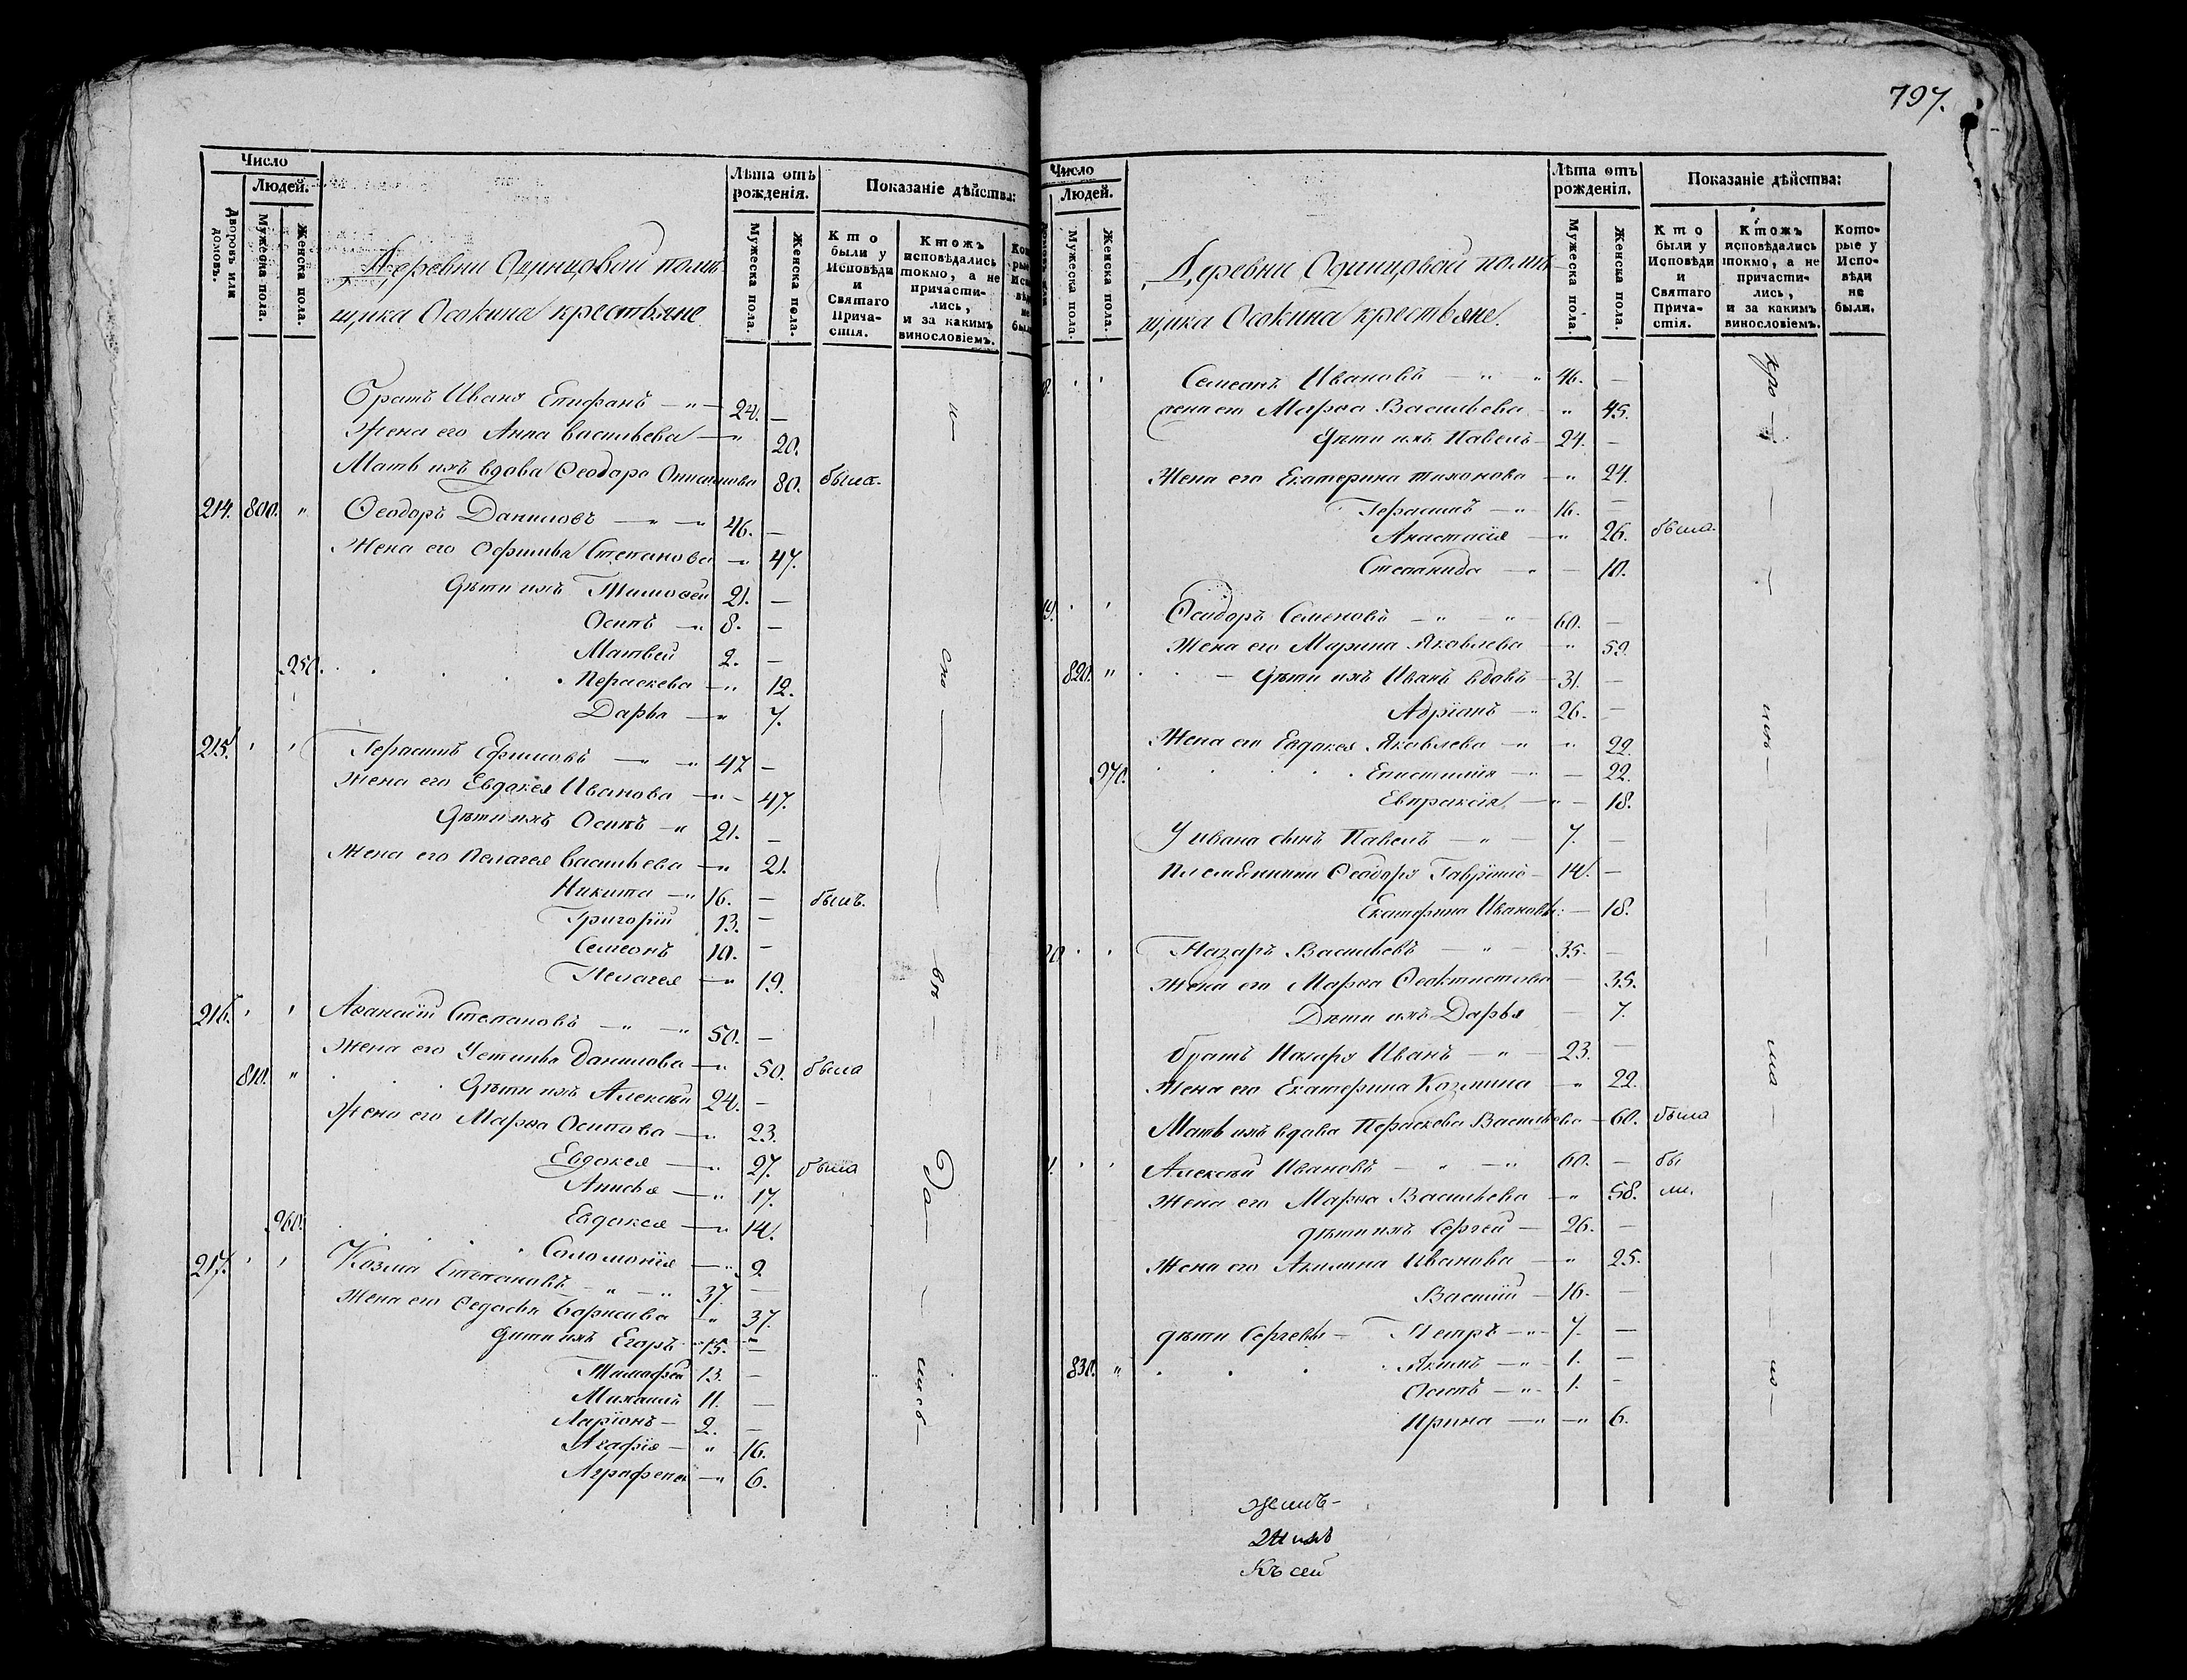 797.
Число
Людей.
Дворовъ или домовъ.
Мужеска пола.
Женска пола.
Лѣта отъ рожденія.
Мужеска пола.
Женска пола.
Показаніе дѣйства:
Кто были у Исповѣди и Святаго Прича-стія.
Ктожъ исповѣдались токмо, а не причасти-лись, и за какимъ винословіемъ.
Деревни Одинцовой помѣ-
щика Осокина крестьяне.
Братъ Ивана Епифанъ — 24. —
Жена его Анна Васильева — 20.
Мать ихъ вдова Ѳеодора 80. была.
214. 800. " Ѳеодоръ Даниловъ — " — " 46. —
Жена его Степанова — " 47.
Дѣти ихъ Тимоѳей 21. —
Осипъ — " 8. —
Матвей 2. —
950. Параскева — " 12.
Дарья — " 7.
215. ' ' Герасимъ Ефимовъ — " 47 —
Жена его Евдокея Иванова — " — 47.
Дѣти ихъ Осипъ — " 21. —
Жена его Пелагея Васильева — " 21.
Никита — " 16. — былъ.
Григорій 13. —
Семеонъ 10. —
Пелагея — " 19.
216. ' ' Аѳанасій Степановъ — " — " 50. —
Жена его Устинья Данилова — " 50. была
810. " Дѣти ихъ Алексѣй 24. —
Жена его Марѳа Осипова — " 23.
Евдокея — " 27. была
Анисья — " 17.
960. Евдокея — " 14.
Соломонія — " 9.
217. ' ' Козма Степановъ — " — " 37. —
Жена его Ѳедосья Борисова — " 37.
Дѣти ихъ Егоръ — 15. —
Тимоѳей 13. —
Михаилъ 11. —
Ларіонъ — 2. —
Агафія — " 16.
Аграфена — " 6.
и —
спо —
вѣ —
да —
лись —
Число
Людей.
Мужеска пола
Женска пола.
Лѣта отъ рожденія.
Мужеска пола.
Женска пола.
Показаніе дѣйства:
Кто были у Исповѣди и Святаго Прича-стія.
Ктожъ исповѣдались токмо, а не причасти-лись, и за какимъ винословіемъ.
Кото-рые у Испо-вѣди не были.
Деревни Одинцовой помѣ-
щика Осокина крестьяне.
8. ' ' Семеонъ Ивановъ — " " 46. —
жена ег Марѳа Васильева " 45.
Дѣти ихъ Павелъ — 24. —
Жена его Екатерина Тихонова — " 24.
Герасимъ — " 16. —
Анастасія — " 26. была.
Степанида — " — 10.
19. ' ' Ѳеодоръ Семеновъ — " — " — 60. —
Жена его Марина Яковлева — " 59.
820. " — Дѣти ихъ Иванъ вдовъ — 31. —
Адріанъ — " 26. —
Жена ег Евдокея Яковлева — " " 22.
970. Епистимія — " — 22.
Евпраксія — " — 18.
У Ивана сынъ Павелъ — " — 7. —
Племянники Ѳеодора Гавріилъ — 14. —
Екатерина Ивановы: — 18.
20. ' ' Назаръ Васильевъ — " — 35. —
Жена его Марѳа Ѳеоктистова — 35.
Дѣти ихъ Дарья — 7.
братъ Назара Иванъ — " — 23. —
Жена его Екатерина Козмина — " 22.
Мать ихъ вдова Параскева Васильева — 60. была
' ' Алексѣй Ивановъ — " — " 60. — бы
Жена его Марѳа Васильева — " 58. ли.
дѣти ихъ Сергей — 26. —
Жена его Акилина Иванова — " 25.
Василій — 16. —
дѣти Сергеевы — Петръ — " — 7. —
830. " Якимъ — " — 1. —
Осипъ — " — 1. —
Ирина — " — " 6.